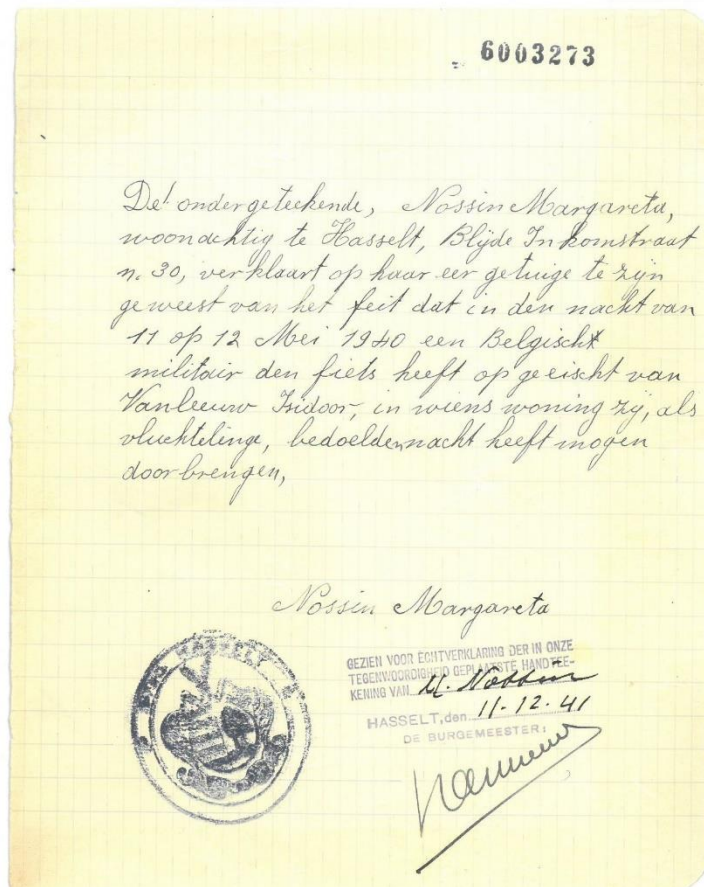 6003273
De ondergeteekende, Nossin Margareta,
woonachtig te Hasselt, Blijde Inkomstraat
n. 30, verklaart op haar eer getuige te zijn
geweest van het feit dat in den nacht van
11 op 12 Mei 1940 een Belgisch
militair den fiets heeft opgeeischt van
Vanleeuw Isidoor, in wiens woning zij, als
vluchtelinge, bedoelden nacht heeft mogen
doorbrengen,
Nossin Margareta
GEZIEN VOOR ECHTVERKLARING DER IN ONZE
TEGENWOORDIGHEID GEPLAATSTE HANDTEE-
KENING VAN M. Nossin
HASSELT, den 11-12-41
DE BURGEMEESTER:
HASSELT